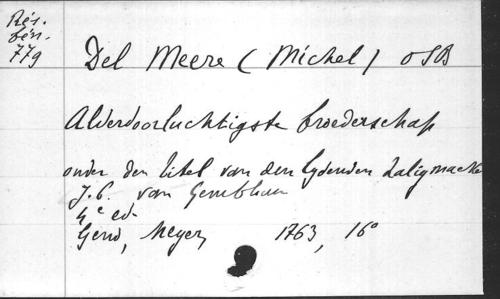 Rés.
bén.
779
Del Meere (Michel) OSB
Alderdoorluchtigste broederschap
onder den titel van den lydenden zaligmacke
J.C. van Gembloux
4e ed.
Gend, Meyer, 1763, 16°